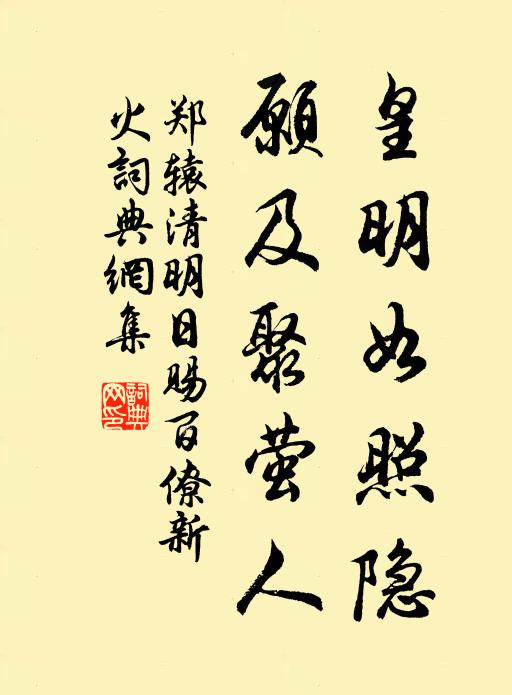 皇明如照隐
願及聚萤人
郑辕清明日赐百僚新
火詞典網集
詞典
网印